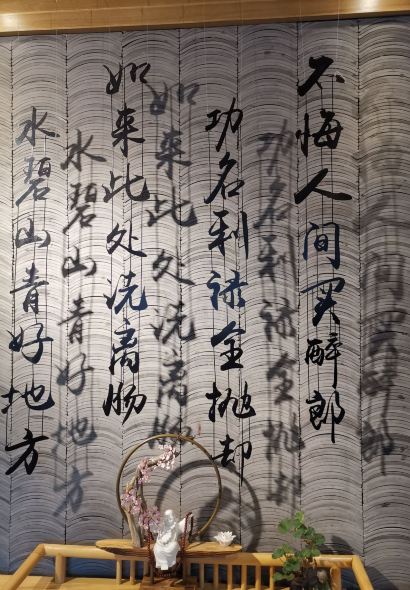 不悔人间买醉郎
功名利禄全抛却
如来此处洗离肠
水碧山青好地方